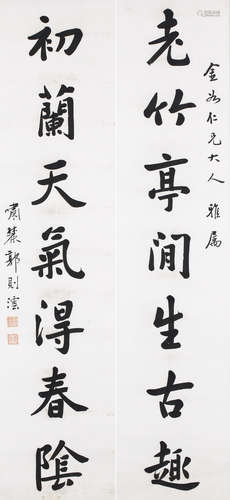 金為仁兄大人 雅屬
老竹亭閒生古趣
初蘭天氣得春陰
嘯麓郭則澐